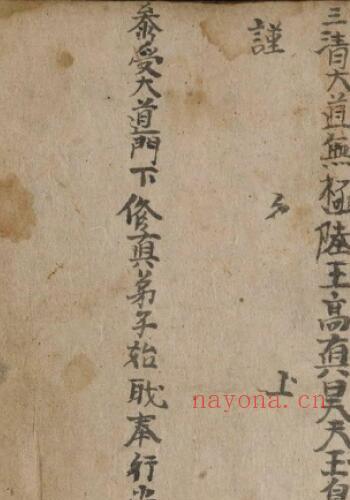 三清大道無極陸王高真昊天玉皇
謹 上
叅受大道門下修真弟子始職奉行
nayona.cn